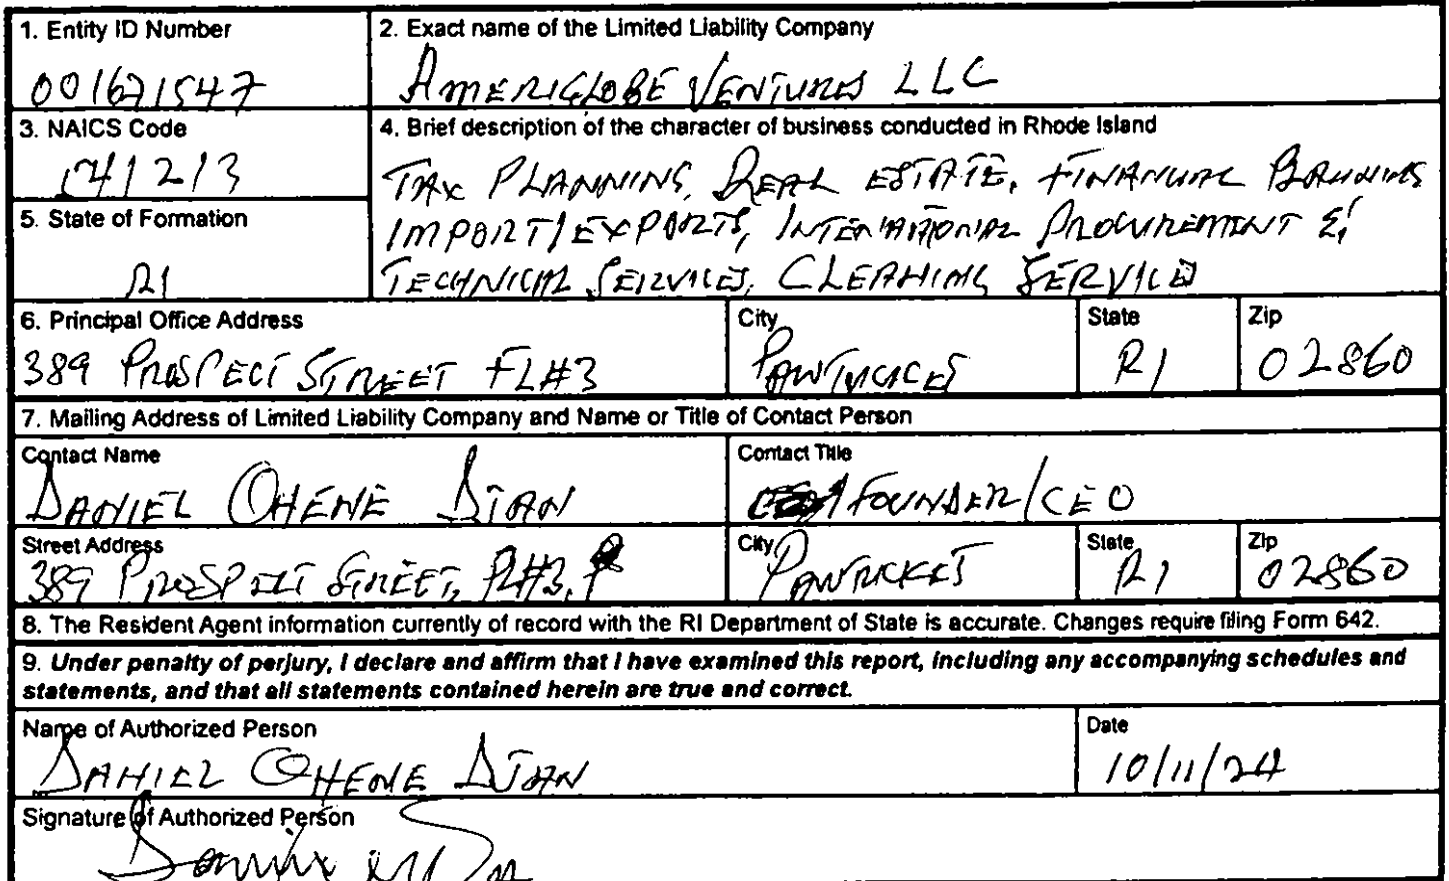 1. Entity ID Number
001671547
2. Exact name of the Limited Liability Company
AMERIGLOBE VENTURES LLC
3. NAICS Code
541213
4. Brief description of the character of business conducted in Rhode Island
TAX PLANNING, REAL ESTATE, FINANCIAL BANKING
IMPORT/EXPORTS, INTERNATIONAL PROCUREMENT &
TECHNICAL SERVICES, CLEANING SERVICES
5. State of Formation
RI
6. Principal Office Address
389 PROSPECT STREET FL#3
City
PAWTUCKET
State
RI
Zip
02860
7. Mailing Address of Limited Liability Company and Name or Title of Contact Person
Contact Name
DANIEL OHENE DJAN
Contact Title
FOUNDER/CEO
Street Address
389 PROSPECT STREET, FL#3,
City
PAWTUCKET
State
RI
Zip
02860
8. The Resident Agent information currently of record with the RI Department of State is accurate. Changes require filing Form 642.
9. Under penalty of perjury, I declare and affirm that I have examined this report, including any accompanying schedules and
statements, and that all statements contained herein are true and correct.
Name of Authorized Person
DANIEL OHENE DJAN
Date
10/11/24
Signature of Authorized Person